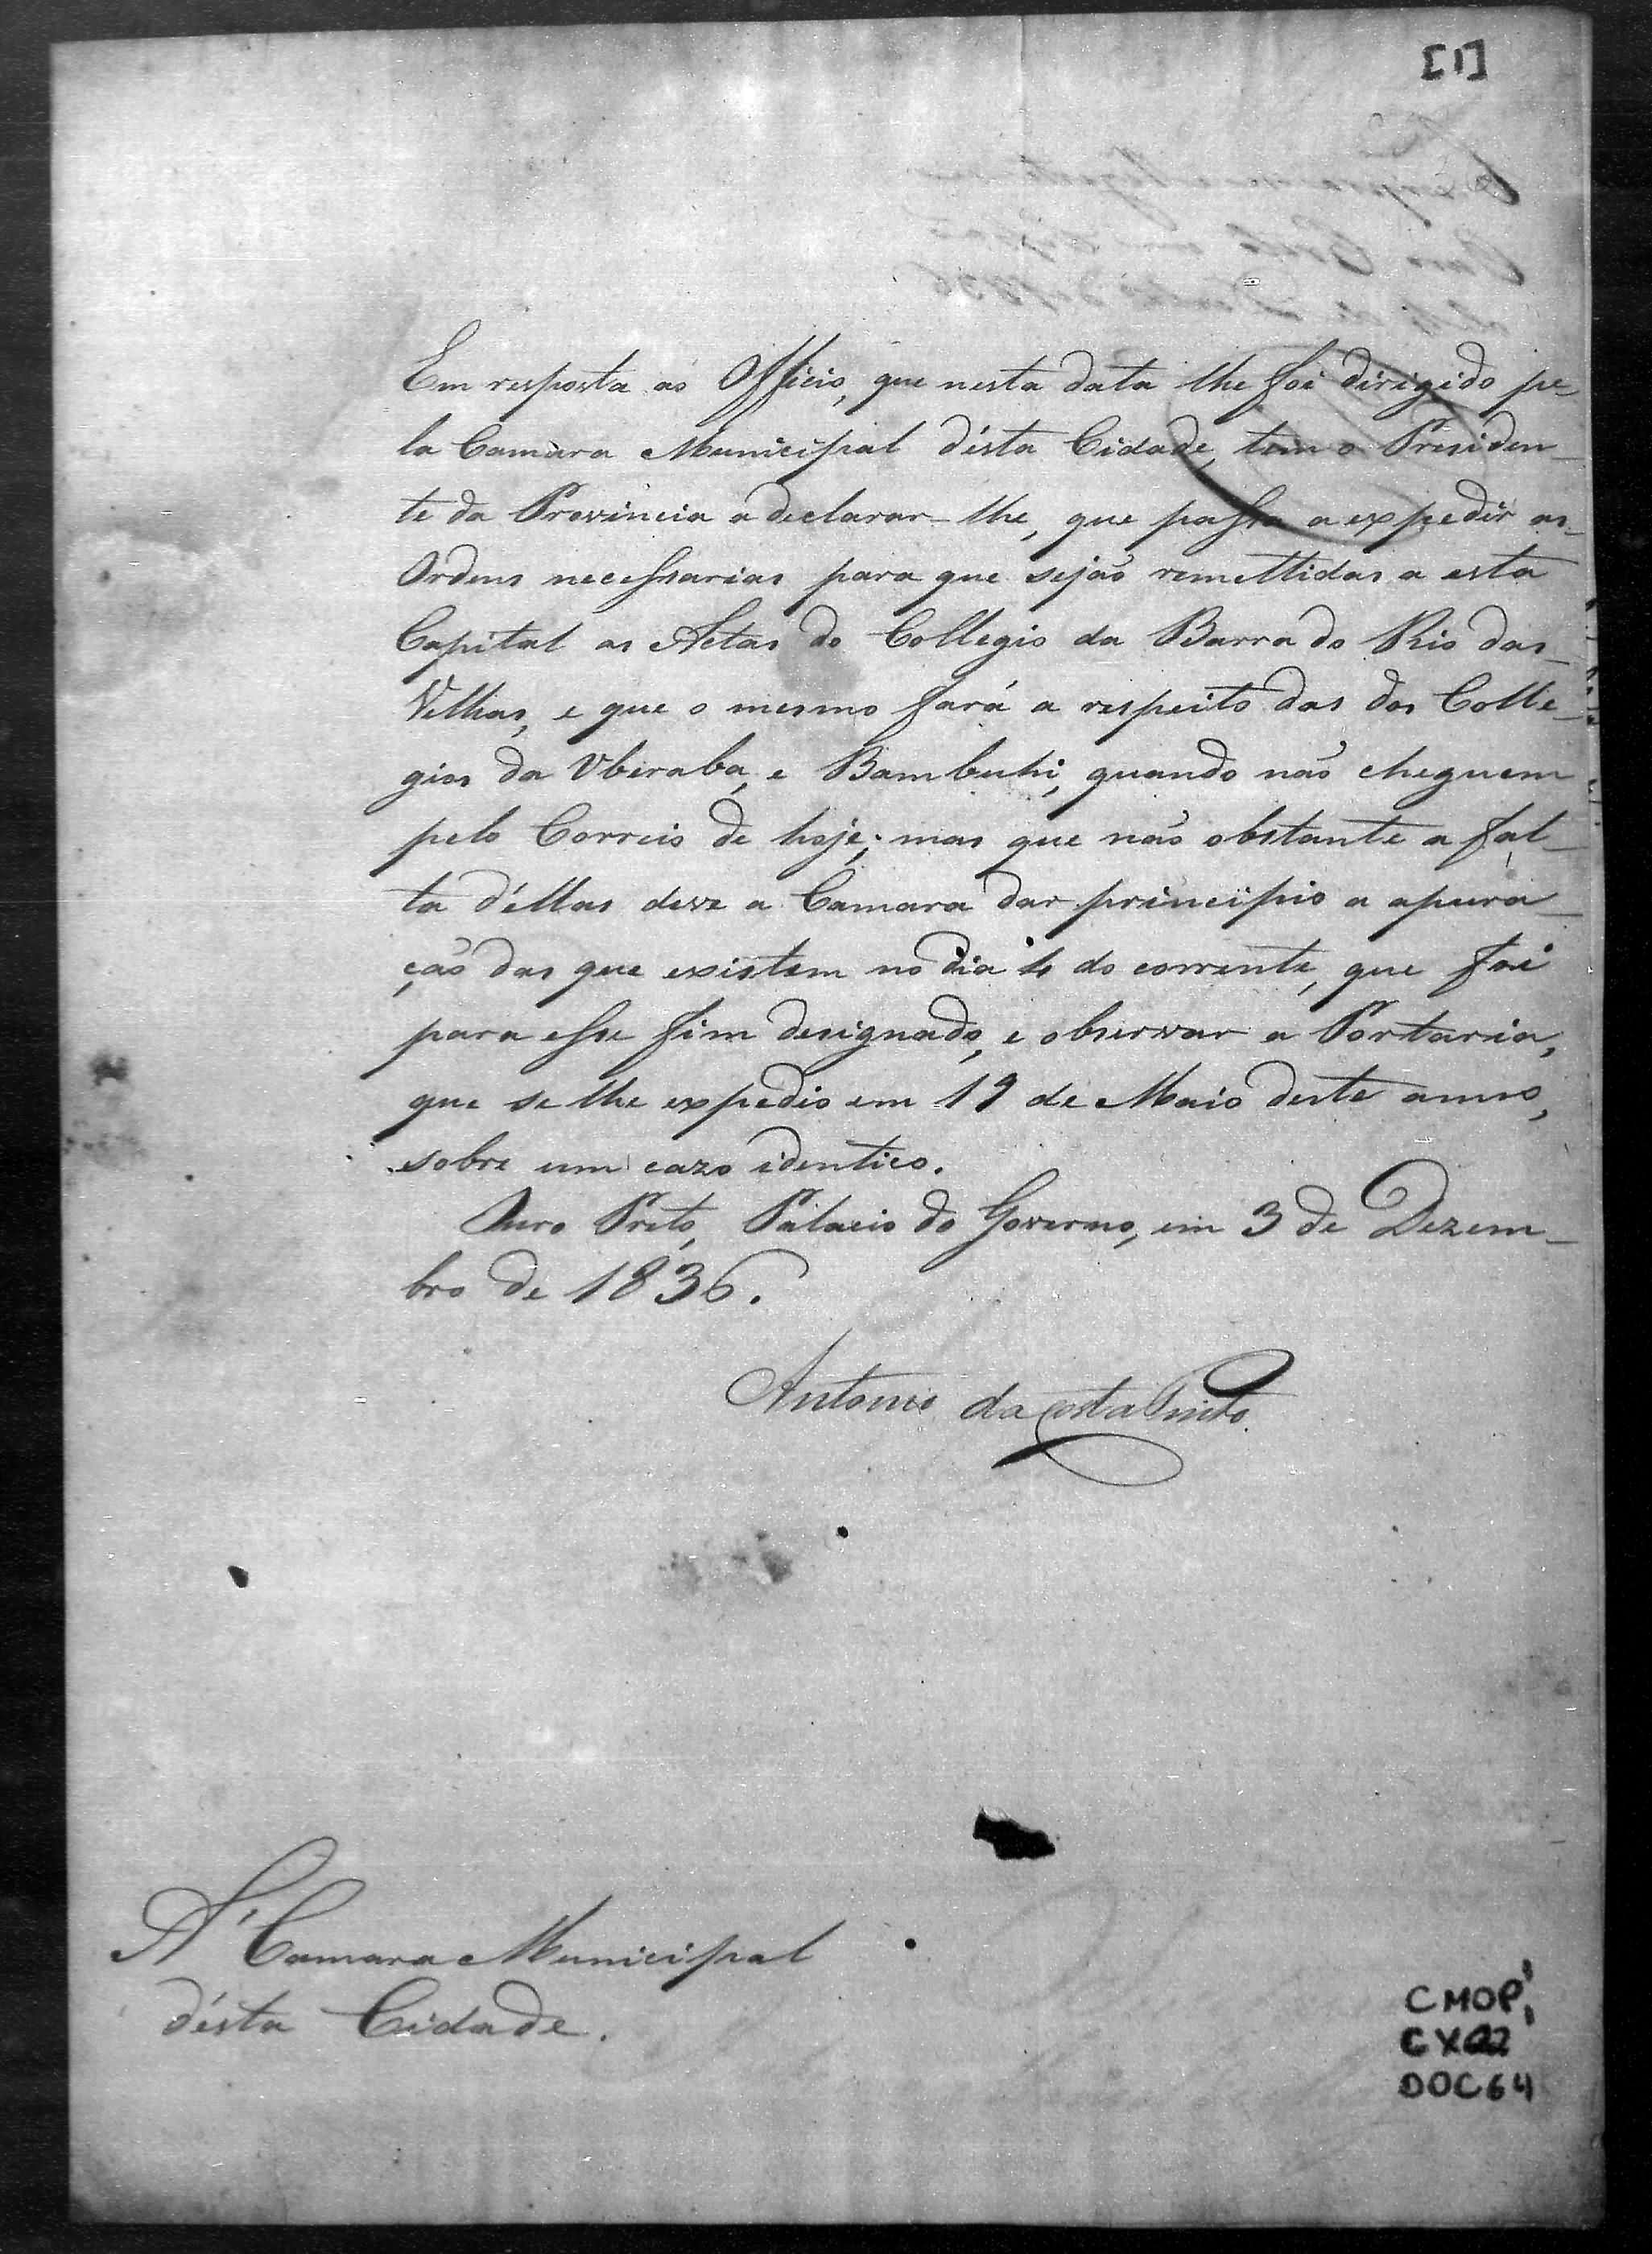 [1]
Em resposta ao Officio, que nesta data lhe foi dirigido pe-
la Camara Municipal désta Cidade, tem o Presiden-
te da Provincia a declarar-lhe, que passa a expedir as
Ordens necessarias para que sejão remettidas a esta
Capital as Actas do Collegio da Barra do Rio das
Velhas, e que o mesmo fará a respeito das dos Colle-
gios da Uberaba, e Bambuhi, quando não cheguem
pelo Correio de hoje; mas que não obstante a fal-
ta d'éllas deve a Camara dar principio a apura-
ção das que existem no dia 4 do corrente, que foi
para esse fim designado, e observar a Portaria,
que se lhe expedio em 19 de Maio deste anno,
sobre um cazo identico.
Ouro Preto, Palacio do Governo, em 3 de Dezem-
bro de 1836.
Antonio da Costa Pinto.
A' Camara Municipal
désta Cidade.
CMOP
CX
DOC 64